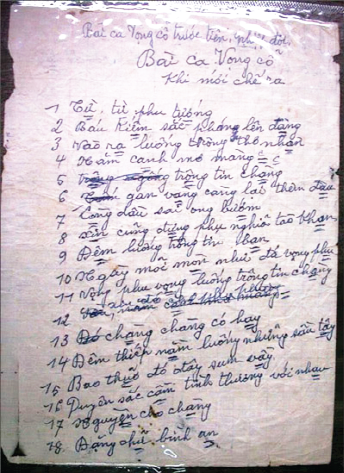 Bài ca Vọng cổ trước tiên, nhịp đôi
Bài ca Vọng cổ
Khi mới chế ra
1 Từ, từ phu tướng
2 Báu kiếm sắc phong lên đàng
3 Vào ra luống trông tho nhạn
4 Năm canh mơ màng
5 trông tin chàng
6 gan vàng càng lại thêm đau
7 Lòng dầu sai ong bướm
8 xin cũng đừng phụ nghĩa tào khan
9 Đêm luống trông tin bạn
10 Ngày mỏi mòn như đá vọng phu
11 Vọng phu vọng luống trông tin chàng
12
13 Đó chàng chàng có hay
14 Đêm thiếp nằm luống những sầu tây
15 Bao thuở đó đây sum vầy
16 Duyên sắc cầm tình thương với nhau
17 Nguyện cho chàng
18 Đặng chữ bình an